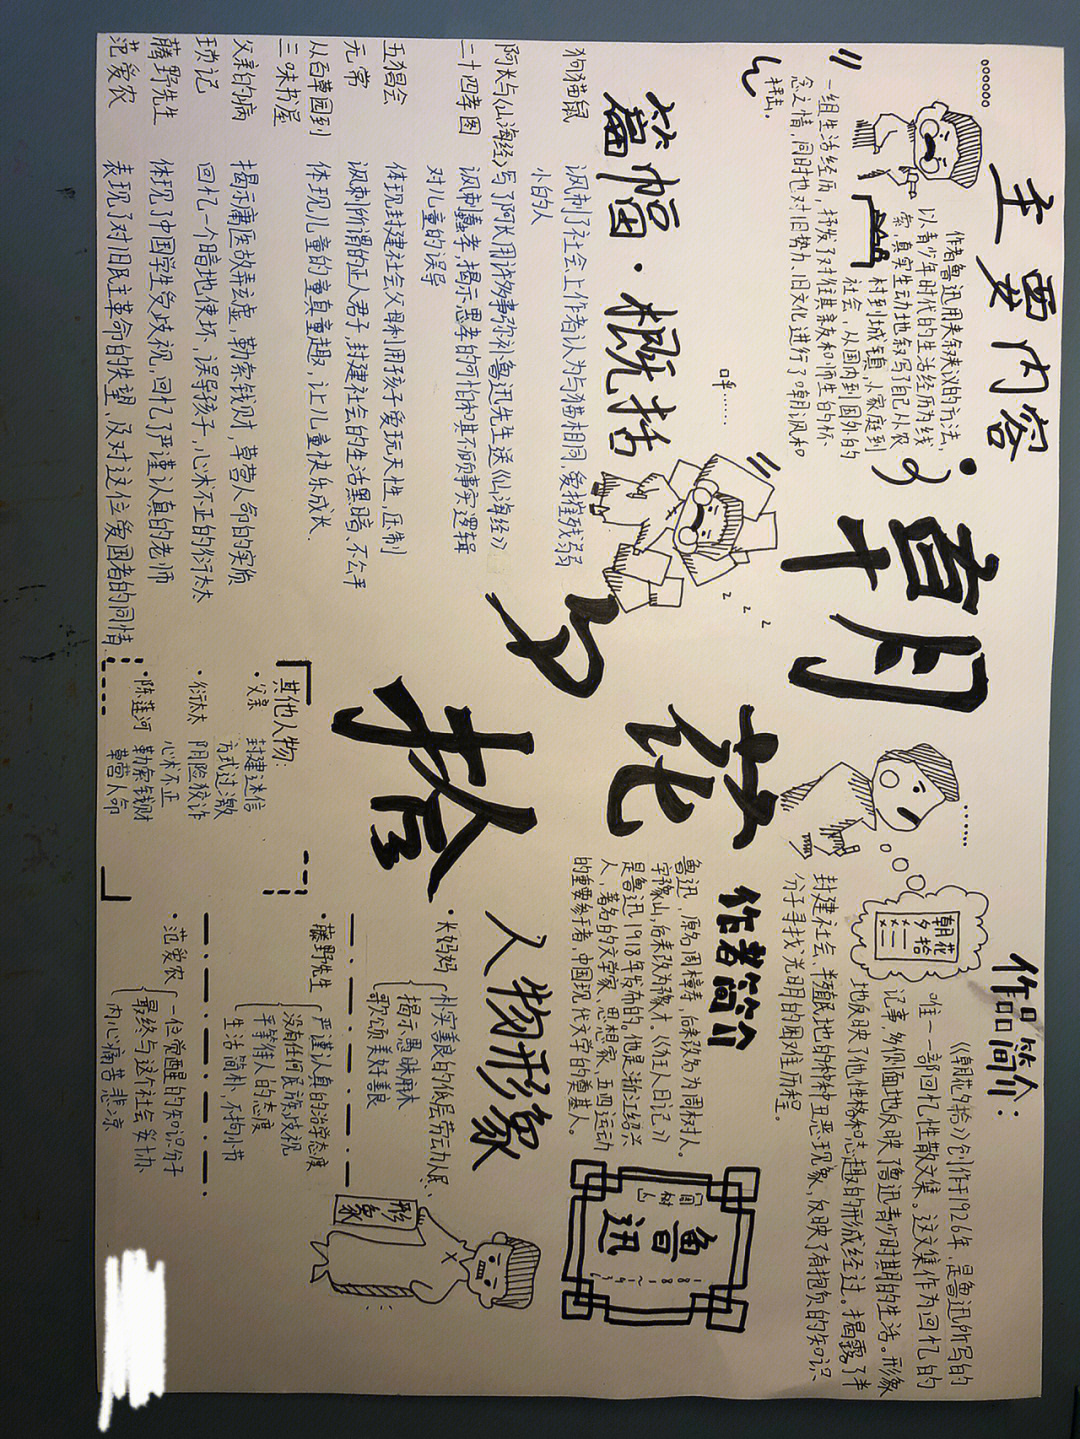 主要内容
作者鲁迅用夹叙夹议的方法,
以青少年时代的生活经历为线
索,真实生动地叙写了自己从农
村到城镇,从家庭到
社会,从国内到国外的
一组生活经历,抒发了对往昔亲友和师生的怀
念之情,同时也对旧势力、旧文化进行了嘲讽和
抨击。
朝
花
夕
拾
作品简介:
《朝花夕拾》创作于1926年,是鲁迅所写的
唯一一部回忆性散文集。这文集作为回忆的
记事,多侧面地反映了鲁迅青少时期的生活。形象
地反映了他性格和志趣的形成经过。揭露了半
封建社会、半殖民地的种种丑恶现象,反映了有抱负的知识
分子寻找光明的困难历程。
朝花
夕拾
篇幅·概括
狗猫鼠 讽刺了社会上作者认为与猫相同,爱摧残弱
小的人
阿长与《山海经》 写了阿长用许多事弥补鲁迅先生送《山海经》
二十四孝图 讽刺愚孝,揭示愚孝的可怕和其不顾事实逻辑
对儿童的误导
五猖会 体现封建社会父母利用孩子爱玩天性,压制
无常 讽刺所谓的正人君子,封建社会的生活黑暗、不公平
从百草园到
三味书屋 体现儿童的童真童趣,让儿童快乐成长、
父亲的病 揭示庸医故弄玄虚,勒索钱财,草菅人命的实质
琐记 回忆一个暗地使坏,误导孩子,心术不正的衍太太
藤野先生 体现了中国学生受歧视,回忆了严谨认真的老师
范爱农 表现了对旧民主革命的失望,及对这位爱国者的同情
作者简介
鲁迅,原名周樟寿,后来改名为周树人。
字豫山,后来改为豫才。《狂人日记》
是鲁迅1918年发布的。他是浙江绍兴
人,著名的文学家、思想家、五四运动
的重要参于者、中国现代文学的奠基人。
鲁迅
人物形象
·长妈妈
朴实善良的低层劳动人民、
揭示愚昧麻木
歌颂美好善良
·藤野先生
严谨认真的治学态度
没有任何民族歧视
平等待人的态度
生活简朴,不拘小节
·范爱农
一位觉醒的知识分子
最终与这个社会妥协
内心痛苦悲凉
形象
其他人物:
·父亲 封建迷信
方式过激
·衍太太 阴险狡诈
心术不正
·陈莲河 勒索钱财
草菅人命